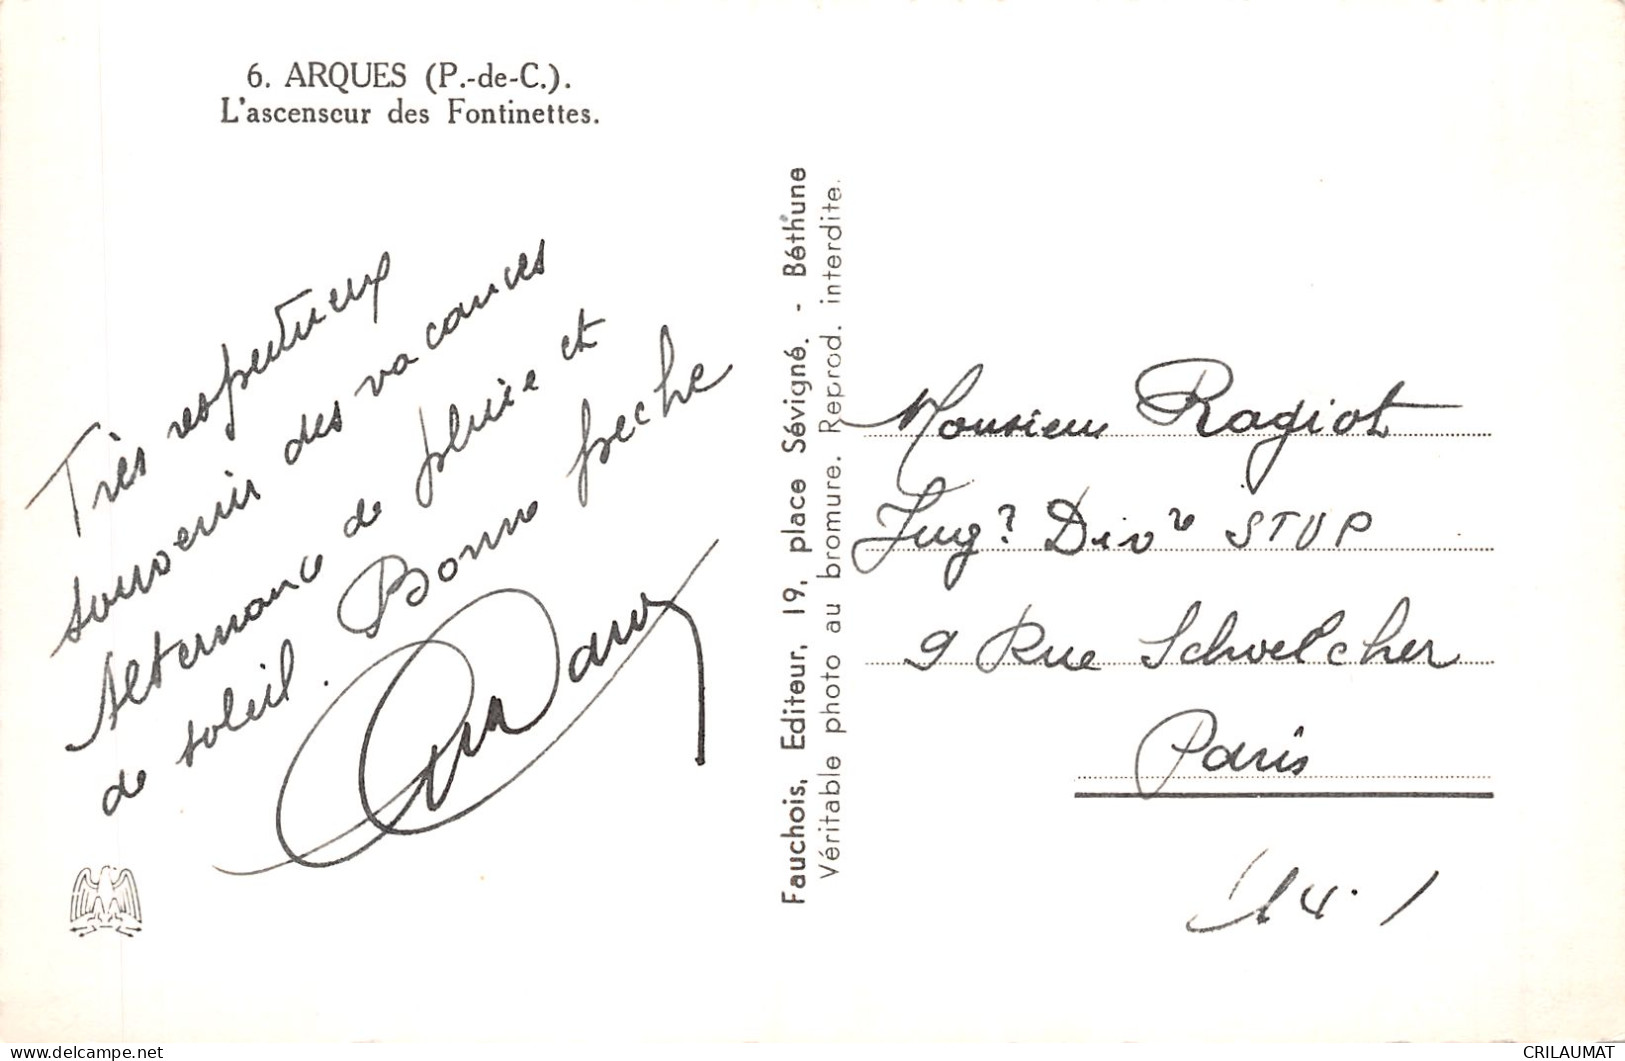 6. ARQUES (P.-de-C.).
L'ascenseur des Fontinettes.
Très respectueux
souvenir des vacances
Alternance de pluie et
de soleil. Bonne pêche
Fauchois, Editeur, 19, place Sévigné. - Béthune
Véritable photo au bromure. Reprod. interdite.
Monsieur Ragiot
Ingr Divre STUP
9 Rue Schoelcher
Paris
14.
CRILAUMAT